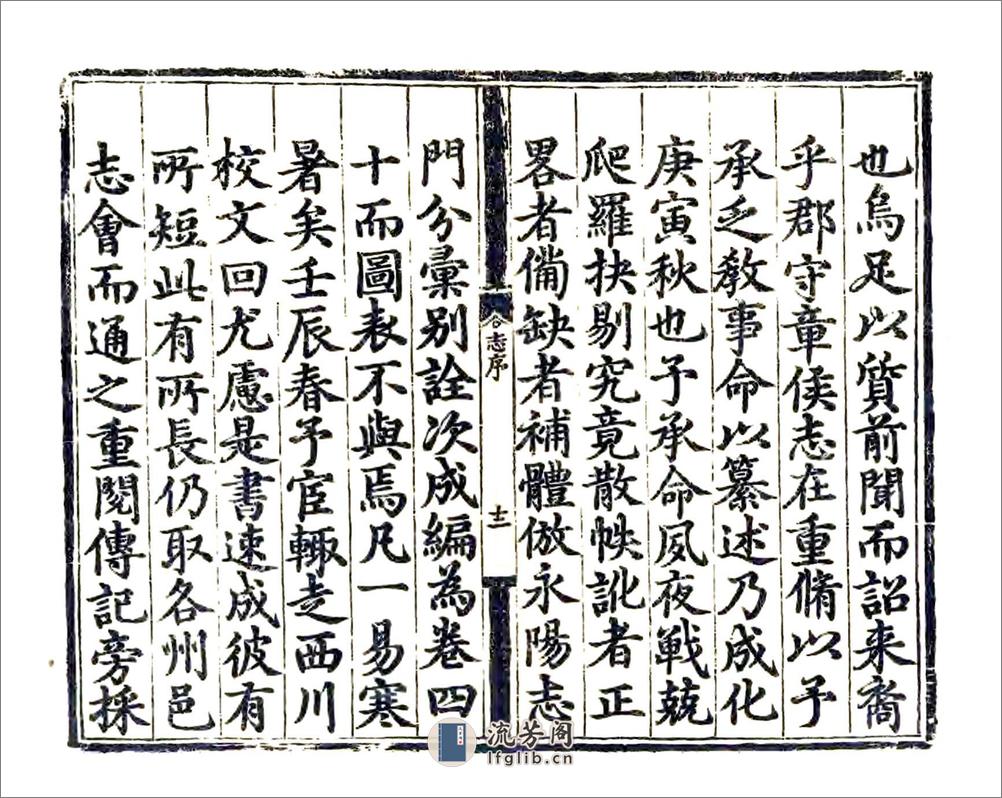 也烏足以質前聞而詔来裔
乎郡守章侯志在重脩以予
承乏教事命以纂述乃成化
庚寅秋也予承命夙夜戰兢
爬羅抉剔究竟散帙訛者正
畧者備缺者補體倣永陽志
合志序
十二
門分彙別詮次成編為卷四
十而圖表不與焉凡一易寒
暑矣壬辰春予宦轍走西川
校文回尤慮是書速成彼有
所短此有所長仍取各州邑
志會而通之重閱傳記旁採
流芳阁
lfglib.cn